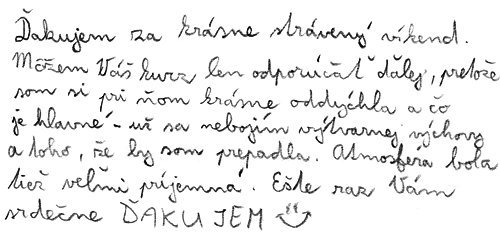 Ďakujem za krásne strávený víkend.
Môžem Váš kurz len odporúčať ďalej, pretože
som si pri ňom krásne oddýchla a čo
je hlavné - už sa nebojím výtvarnej výchovy
a toho, že by som prepadla. Atmosféra bola
tiež veľmi príjemná. Ešte raz Vám
srdečne ĎAKUJEM